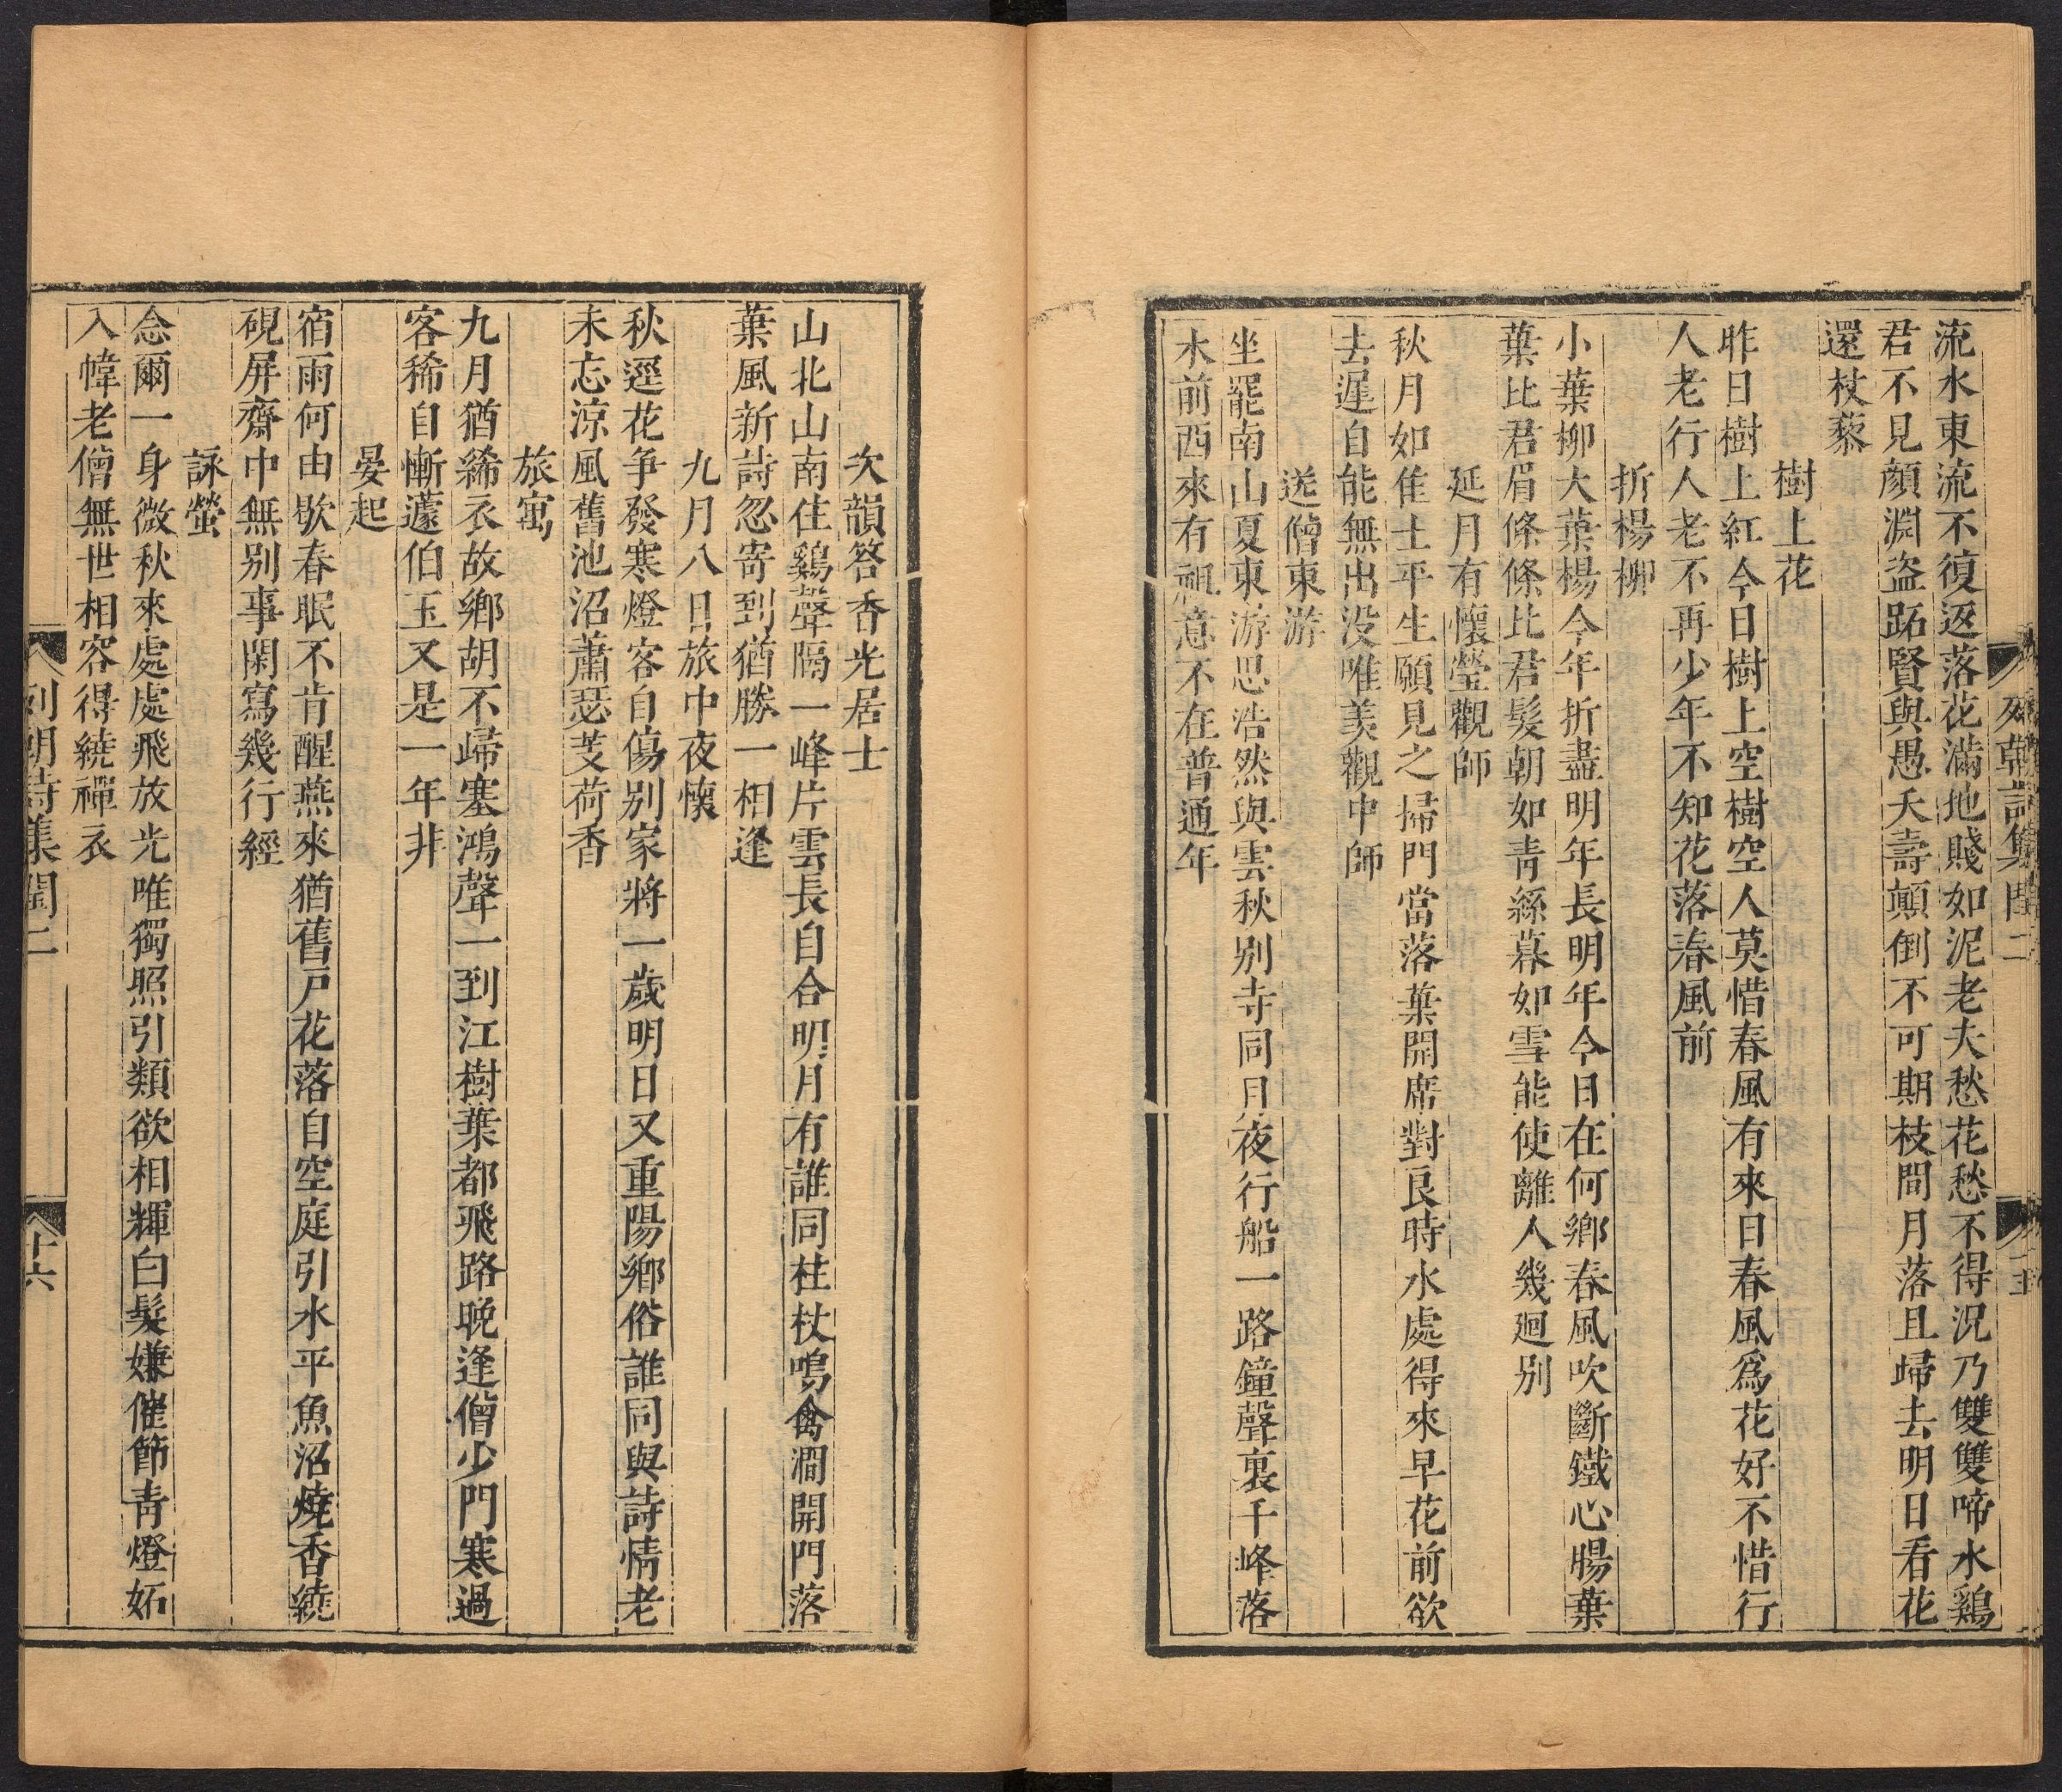 列朝詩集閏二
流水東流不復返落花滿地賤如泥老夫愁花愁不得況乃雙雙啼水鷄
君不見顔淵盜跖賢與愚夭壽顛倒不可期枝間月落且歸去明日看花
還杖藜
樹上花
昨日樹上紅今日樹上空樹空人莫惜春風有來日春風爲花好不惜行
人老行人老不再少年不知花落春風前
折楊柳
小葉柳大葉楊今年折盡明年長明年今日在何鄉春風吹斷鐵心腸葉
葉比君眉條條比君髮朝如青絲暮如雪能使離人幾迴别
延月有懷瑩觀師
秋月如隹士平生願見之掃門當落葉開席對良時水處得來早花前欲
去遲自能無出没唯羙觀中師
送僧東游
坐罷南山夏東游思浩然與雲秋别寺同月夜行船一路鐘聲裏千峰落
木前西來有祖意不在普通年
次韻答香光居士
山北山南住鷄聲隔一峰片雲長自合明月有誰同柱杖鳴禽澗開門落
葉風新詩忽寄到猶勝一相逢
九月八日旅中夜懷
秋逕花争發寒燈客自傷别家將一歲明日又重陽鄉俗誰同與詩情老
未忘凉風舊池沼蕭瑟芰荷香
旅寓
九月猶絺衣故鄉胡不歸塞鴻聲一到江樹葉都飛路晚逢僧少門寒過
客稀自慚蘧伯玉又是一年非
晏起
宿雨何由歇春眠不肯醒燕來猶舊戸花落自空庭引水平魚沼燒香繞
硯屏齋中無别事閑寫幾行經
詠螢
念爾一身微秋來處處飛放光唯獨照引類欲相輝白髮嫌催節青燈妬
入幃老僧無世相容得繞禪衣
列朝詩集閏二
十六